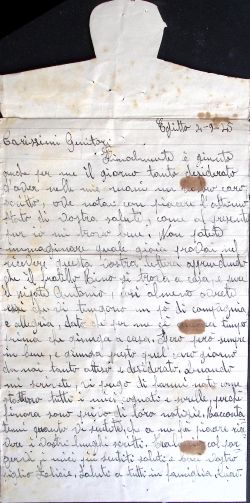 Egitto 2-9-45
Carissimi Genitori
Finalmente è giunto
anche per me il giorno tanto desiderato
d'aver nelle mie mani un vostro caro
scritto, ove notai con piacere l'ottimo
stato di vostra salute, come al presente
pur io mi trovo bene. Non potete
immaginare quale gioia provai nel
ricevere questa vostra lettera apprendendo
che il fratello Bino si trova a casa, e pure
il nipote Antonio, così almeno avrete
che vi tengono un pò di compagnia
e allegria, dato che per me ci vorrà tempo
prima che rimarda a casa. Però però sempre
in bene, e venga presto quel caro giorno
da noi tanto atteso e desiderato. Quando
mi scrivete, vi prego di farmi noto
tutti i miei cognati e sorelle, perché
finora sono privo di loro notizie. Racconta
temi quanto vi sentite, che a me fa piacere rice
vere i vostri lunghi scritti.
miei più sentiti saluti e baci vostro
figlio Felice. Saluti a tutti in famiglia. Ciao.